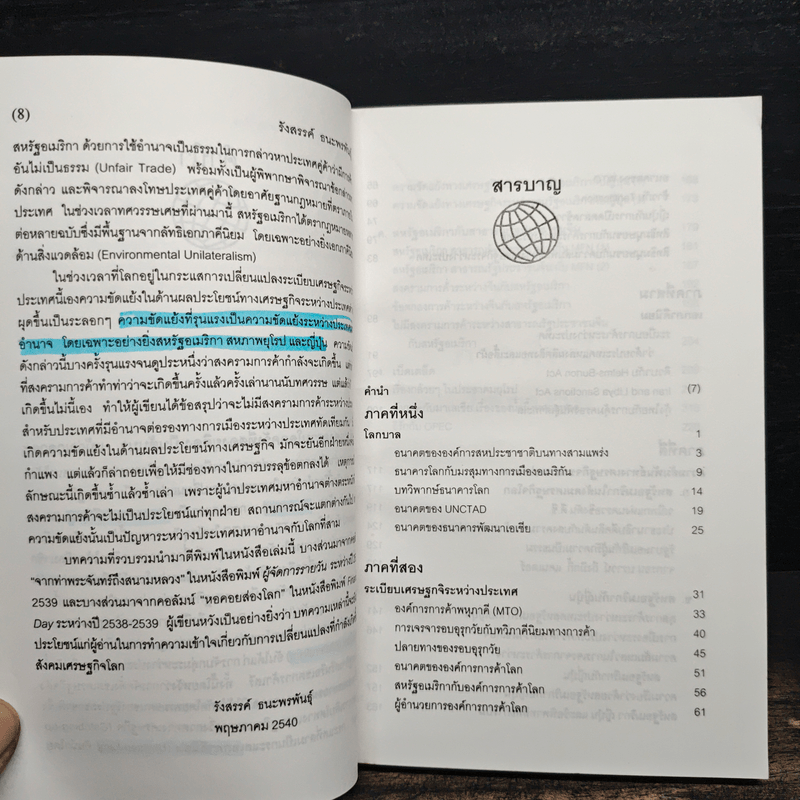 (8)
รังสรรค์ ธนะพรพันธุ์
สหรัฐอเมริกา ด้วยการใช้อำนาจเป็นธรรมในการกล่าวหาประเทศคู่ค้าว่ามีการค้า
อันไม่เป็นธรรม (Unfair Trade) พร้อมทั้งเป็นผู้พิพากษาพิจารณาข้อกล่าวหา
ดังกล่าว และพิจารณาลงโทษประเทศคู่ค้าโดยอาศัยฐานกฎหมายที่ตราภายใน
ประเทศ ในช่วงเวลาทศวรรษเศษที่ผ่านมานี้ สหรัฐอเมริกาได้ตรากฎหมาย
ต่อหลายฉบับซึ่งมีพื้นฐานจากลัทธิเอกภาคีนิยม โดยเฉพาะอย่างยิ่งเอกภาคีนิยม
ด้านสิ่งแวดล้อม (Environmental Unilateralism)
ในช่วงเวลาที่โลกอยู่ในกระแสการเปลี่ยนแปลงระเบียบเศรษฐกิจระหว่าง
ประเทศนี้เองความขัดแย้งในด้านผลประโยชน์ทางเศรษฐกิจระหว่างประเทศ
ผุดขึ้นเป็นระลอกๆ ความขัดแย้งที่รุนแรงเป็นความขัดแย้งระหว่างประเทศมหา
อำนาจ โดยเฉพาะอย่างยิ่งสหรัฐอเมริกา สหภาพยุโรป และญี่ปุ่น ความขัดแย้ง
ดังกล่าวนี้บางครั้งรุนแรงจนดูประหนึ่งว่าสงครามการค้ากำลังจะเกิดขึ้น แต่
ที่สงครามการค้าทำท่าว่าจะเกิดขึ้นครั้งแล้วครั้งเล่านานนับทศวรรษ แต่แล้วก็
เกิดขึ้นไม่นี้เอง ทำให้ผู้เขียนได้ข้อสรุปว่าจะไม่มีสงครามการค้าระหว่างประเทศ
สำหรับประเทศที่มีอำนาจต่อรองทางการเมืองระหว่างประเทศทัดเทียมกัน
เกิดความขัดแย้งในด้านผลประโยชน์ทางเศรษฐกิจ มักจะยันอีกฝ่ายหนึ่ง
กำแพง แต่แล้วก็ล่าถอยเพื่อให้มีช่องทางในการบรรลุข้อตกลงได้ เหตุการณ์
ลักษณะนี้เกิดขึ้นซ้ำแล้วซ้ำเล่า เพราะผู้นำประเทศมหาอำนาจต่างตระหนัก
สงครามการค้าจะไม่เป็นประโยชน์แก่ทุกฝ่าย สถานการณ์จะแตกต่างกันไป
ความขัดแย้งนั้นเป็นปัญหาระหว่างประเทศมหาอำนาจกับโลกที่สาม
บทความที่รวบรวมนำมาตีพิมพ์ในหนังสือเล่มนี้ บางส่วนมาจากคอลัมน์
“จากท่าพระจันทร์ถึงสนามหลวง” ในหนังสือพิมพ์ ผู้จัดการรายวัน ระหว่างปี
2539 และบางส่วนมาจากคอลัมน์ “หอคอยส่องโลก” ในหนังสือพิมพ์
Day ระหว่างปี 2538-2539 ผู้เขียนหวังเป็นอย่างยิ่งว่า บทความเหล่านี้จะ
ประโยชน์แก่ผู้อ่านในการทำความเข้าใจเกี่ยวกับการเปลี่ยนแปลงที่กำลังเกิดขึ้น
สังคมเศรษฐกิจโลก
รังสรรค์ ธนะพรพันธุ์
พฤษภาคม 2540
สารบาญ
คำนำ (7)
ภาคที่หนึ่ง
โลกบาล 1
อนาคตขององค์การสหประชาชาติบนทางสามแพร่ง 3
ธนาคารโลกกับมรสุมทางการเมืองอเมริกัน 9
บทวิพากษ์ธนาคารโลก 14
อนาคตของ UNCTAD 19
อนาคตของธนาคารพัฒนาเอเชีย 25
ภาคที่สอง
ระเบียบเศรษฐกิจระหว่างประเทศ 31
องค์การการค้าพหุภาคี (MTO) 33
การเจรจารอบอุรุกวัยกับทวิภาคีนิยมทางการค้า 40
ปลายทางของรอบอุรุกวัย 45
อนาคตขององค์การการค้าโลก 51
สหรัฐอเมริกากับองค์การการค้าโลก 56
ผู้อำนวยการองค์การการค้าโลก 61